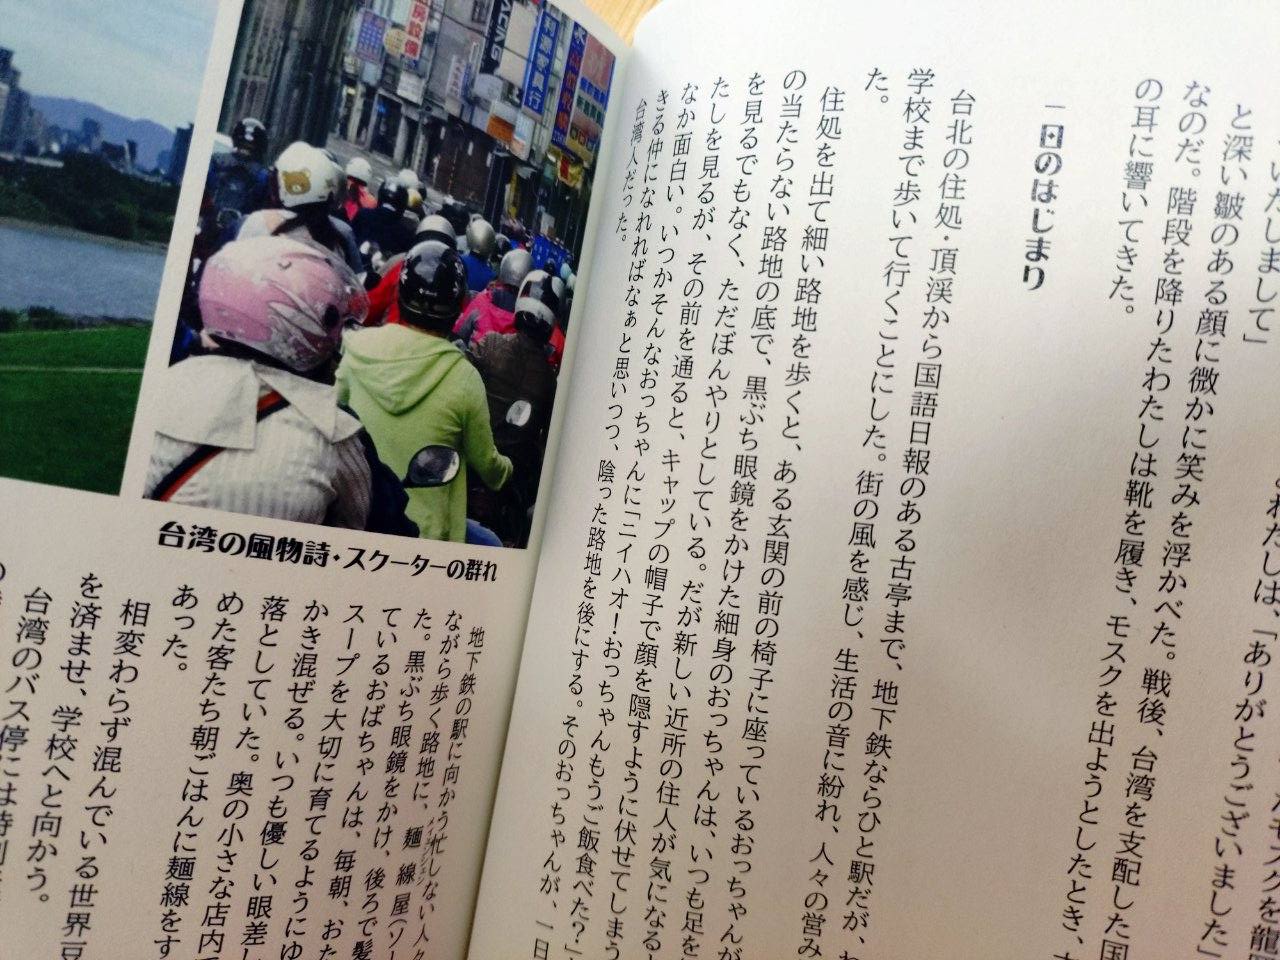 いたしまして」
と深い皺のある顔に微かに笑みを浮かべた。戦後、台湾を支配した国
なのだ。階段を降りたわたしは靴を履き、モスクを出ようとしたとき、
の耳に響いてきた。
わたしは、「ありがとうございました」
一日のはじまり
台北の住処・頂渓から国語日報のある古亭まで、地下鉄ならひと駅だが、
学校まで歩いて行くことにした。街の風を感じ、生活の音に紛れ、人々の営み
た。
住処を出て細い路地を歩くと、ある玄関の前の椅子に座っているおっちゃんが
の当たらない路地の底で、黒ぶち眼鏡をかけた細身のおっちゃんは、いつも足を
を見るでもなく、ただぼんやりとしている。だが新しい近所の住人が気になる
たしを見るが、その前を通ると、キャップの帽子で顔を隠すように伏せてしまう
なか面白い。いつかそんなおっちゃんに「ニイハオ!おっちゃんもうご飯食べた?」
きる仲になれればなぁと思いつつ、陰った路地を後にする。そのおっちゃんが、一日
台湾人だった。
台湾の風物詩・スクーターの群れ
地下鉄の駅に向かう忙しない人々
ながら歩く路地に、麺線屋(ソー
た。黒ぶち眼鏡をかけ、後ろで髪
ているおばちゃんは、毎朝、おた
スープを大切に育てるようにゆ
かき混ぜる。いつも優しい眼差し
落としていた。奥の小さな店内で
めた客たち朝ごはんに麺線をす
あった。
相変わらず混んでいる世界豆
を済ませ、学校へと向かう。
台湾のバス停には時刻